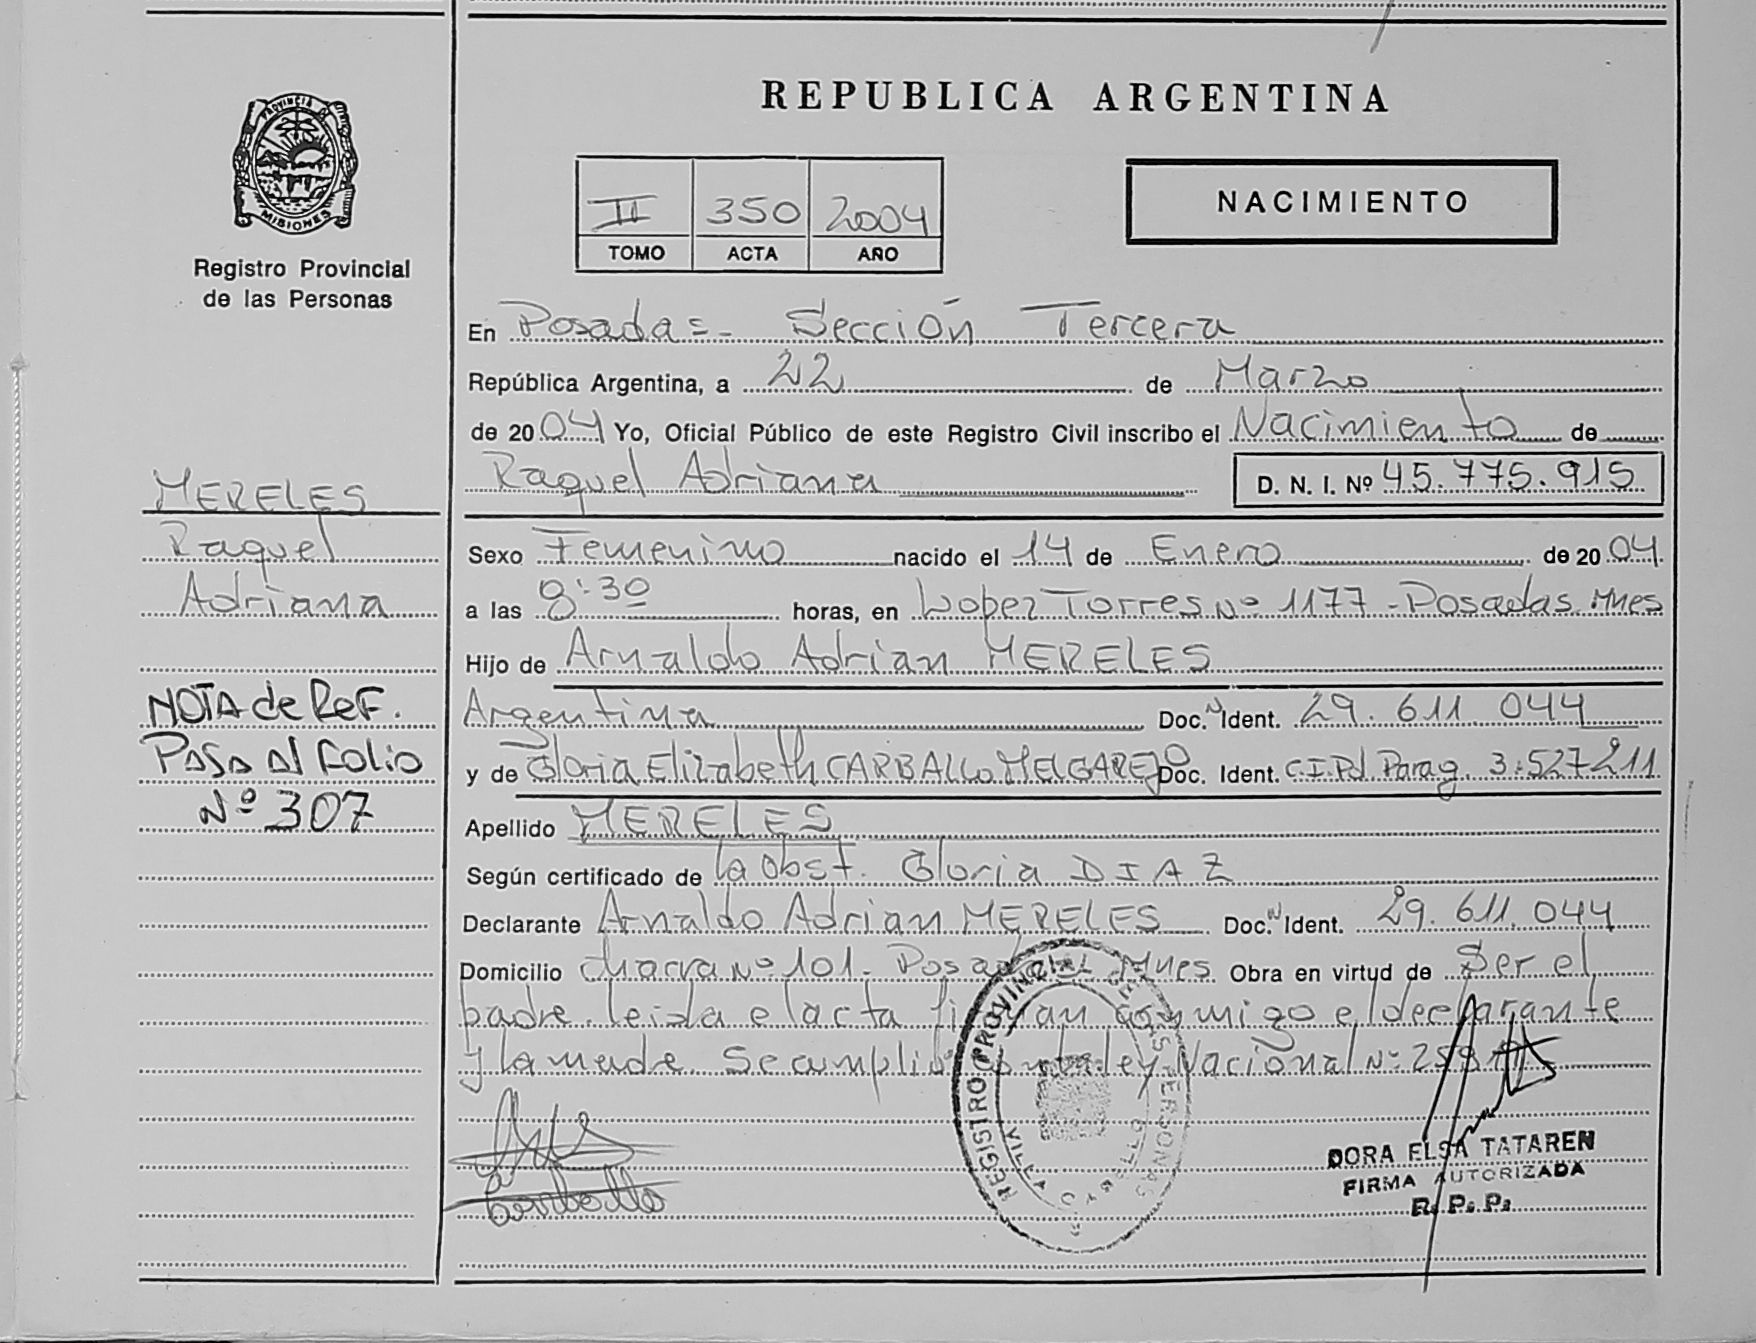 REPUBLICA ARGENTINA
PROVINCIA DE
MISIONES
Registro Provincial
de las Personas
II 350 2004
TOMO ACTA AÑO
NACIMIENTO
En Posadas=- Sección Tercera
República Argentina, a 22 de Marzo
de 2004 Yo, Oficial Público de este Registro Civil inscribo el Nacimiento de
Raquel Adriana D. N. I. Nº 45.775.915
MERELES
Raquel
Adriana
NOTA de Ref.
PASA Al folio
Nº 307
Sexo Femenino nacido el 14 de Enero de 2004.
a las 8:30 horas, en Lopez Torres Nº 1177 - Posadas Mnes
Hijo de Arnaldo Adrian MERELES
Argentina Doc. N Ident. 29. 611 044
y de Gloria Elizabeth CARBALLO MELGAREJO Doc. Ident. C.I.Pd. Parag. 3.527211
Apellido MERELES
Según certificado de la obst. Gloria DIAZ
Declarante Arnaldo Adrian MERELES Doc. N Ident. 29. 611. 044
Domicilio chacra Nº 101. Posadas Mnes Obra en virtud de Ser el
padre. leida el acta firman conmigo el declarante
y la madre. Se cumplio con la ley Nacional Nº
REGISTRO PROVINCIAL DE LAS PERSONAS
VILLA CABELLO
Carballo
DORA ELSA TATAREN
FIRMA AUTORIZADA
R. P. P.